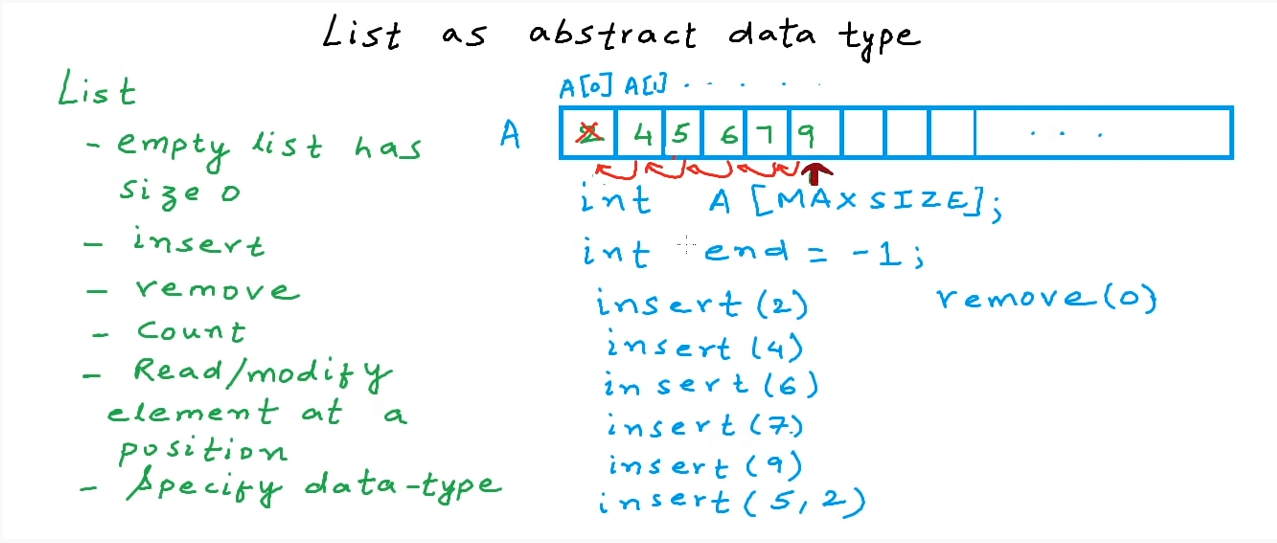 List as abstract data type
List
- empty list has
size 0
- insert
- remove
- Count
- Read/modify
element at a
position
- Specify data-type
A[0] A[1] . . . . .
A 2 4 5 6 7 9 . . .
int A [MAXSIZE];
int end = -1;
insert (2) remove(0)
insert (4)
insert (6)
insert (7)
insert (9)
insert (5, 2)